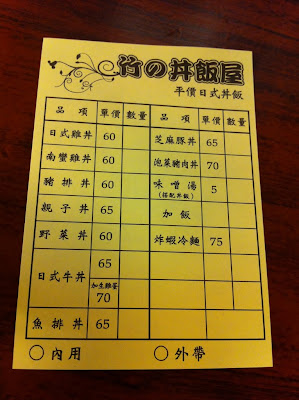 竹の丼飯屋
平價日式丼飯
品項 單價 數量 品項 單價 數量
日式雞丼 60 芝麻豚丼 65
南蠻雞丼 60 泡菜豬肉丼 70
豬排丼 60 味噌湯 5
(搭配丼飯)
親子丼 65 加飯
野菜丼 60 炸蝦冷麵 75
日式牛丼 65
加生雞蛋
70
魚排丼 65
○內用 ○外帶